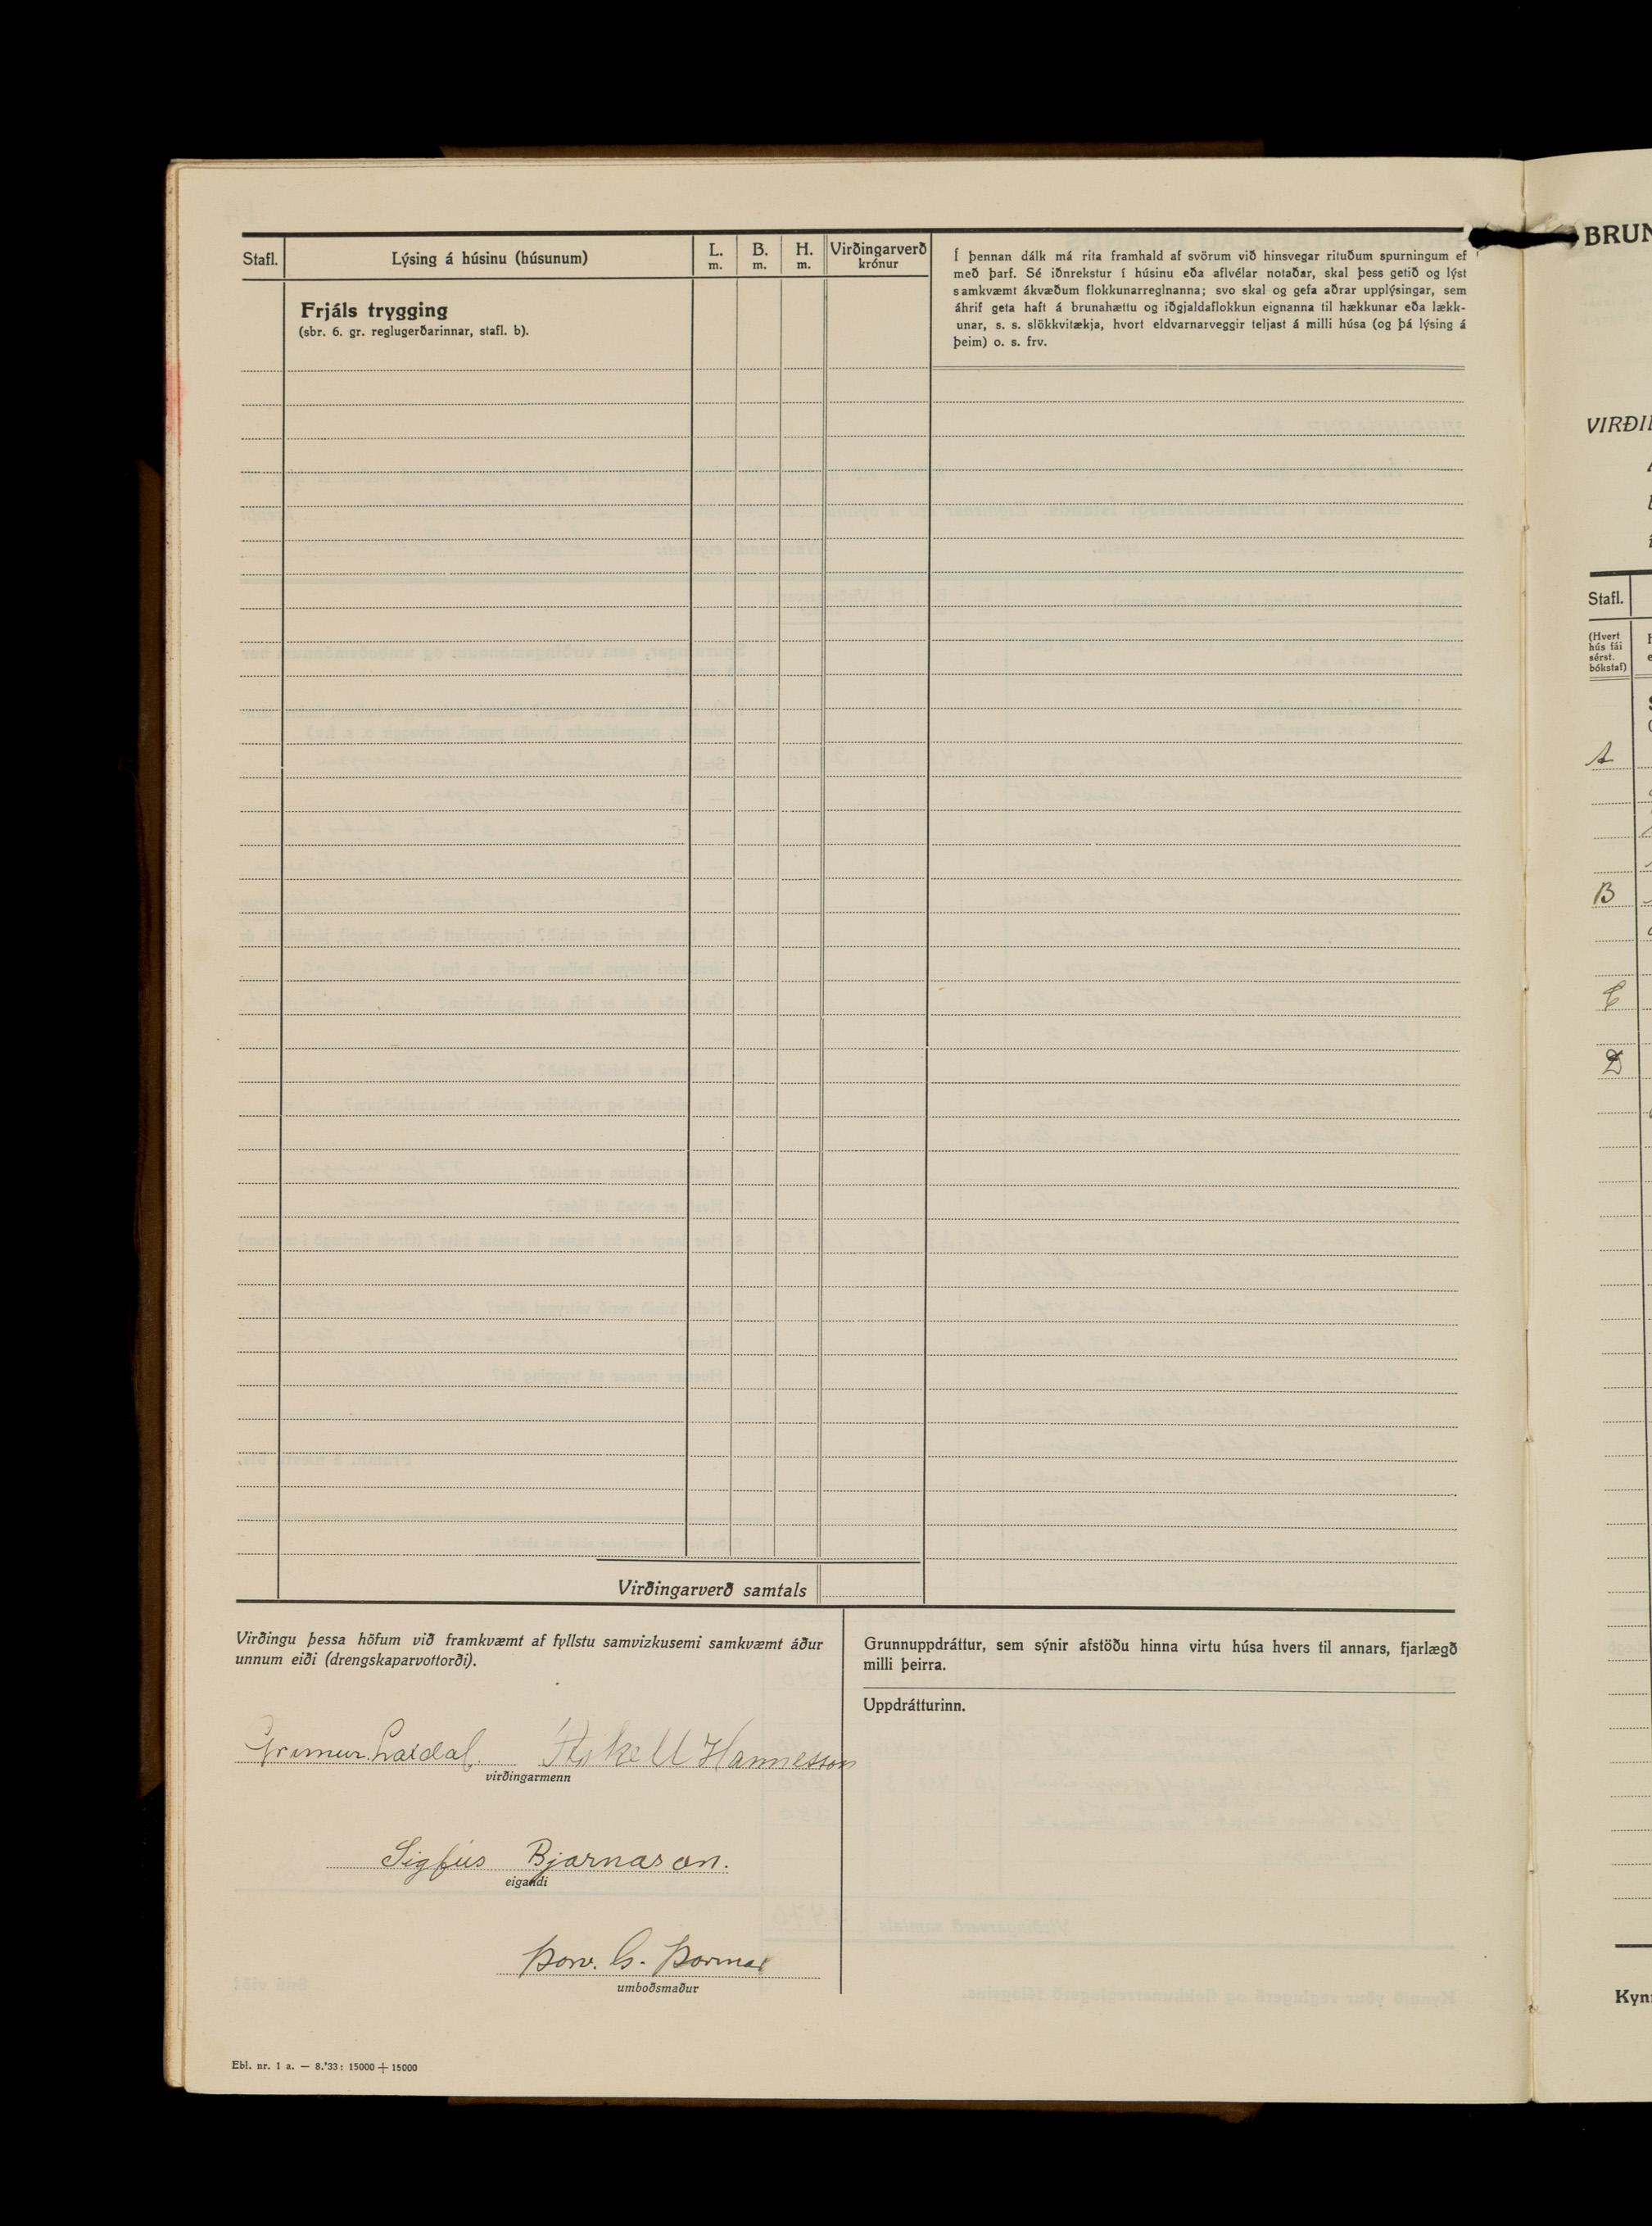 Stafl.
Lýsing á húsinu (húsunum)
L.
m.
B.
m.
H.
m.
Virðingarverð
krónur
Frjáls trygging
(sbr. 6. gr. reglugerðarinnar, stafl. b).
Í þennan dálk má rita framhald af svörum við hinsvegar rituðum spurningum ef
með þarf. Sé iðnrekstur í húsinu eða aflvélar notaðar, skal þess getið og lýst
samkvæmt ákvæðum flokkunarreglnanna; svo skal og gefa aðrar upplýsingar, sem
áhrif geta haft á brunahættu og iðgjaldaflokkun eignanna til hækkunar eða lækk-
unar, s. s. slökkvitækja, hvort eldvarnarveggir teljast á milli húsa (og þá lýsing á
þeim) o. s. frv.
Virðingarverð samtals
Virðingu þessa höfum við framkvæmt af fyllstu samvizkusemi samkvæmt áður
unnum eiði (drengskaparvottorði).
Grímur Laxdal. Áskell Hannesson
virðingarmenn
Sigfús Bjarnason.
eigandi
Þorv. G. Þormar
umboðsmaður
Grunnuppdráttur, sem sýnir afstöðu hinna virtu húsa hvers til annars, fjarlægð
milli þeirra.
Uppdrátturinn.
Ebl. nr. 1 a. — 8.'33: 15000 + 15000
BRUN
VIRÐI
Stafl.
(Hvert
hús fái
sérst.
bókstaf)
A
B
C
D
Kyn